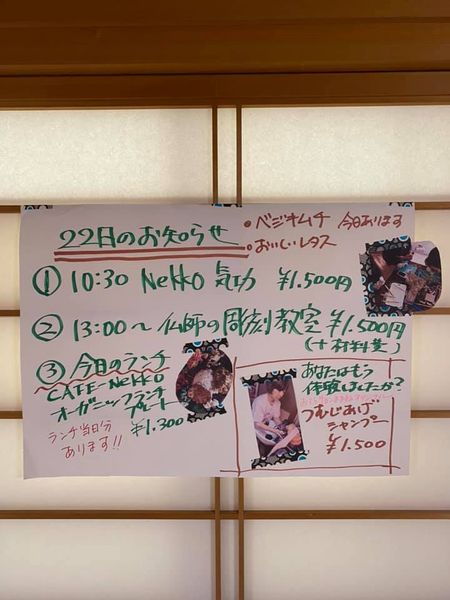 22日のお知らせ
・ベジオムチ 今日あります
・おいしいレタス
① 10:30 Nekko 気功 ¥1.500円
② 13:00〜 仏師の彫刻教室 ¥1.500円
(+材料費)
③ 今日のランチ
CAFE-NEKKO
オーガニックランチ
プレート
¥1.300
ランチ当日分
あります!!
あなたはもう
体験しましたか?
つむじあげ
シャンプー
¥1.500